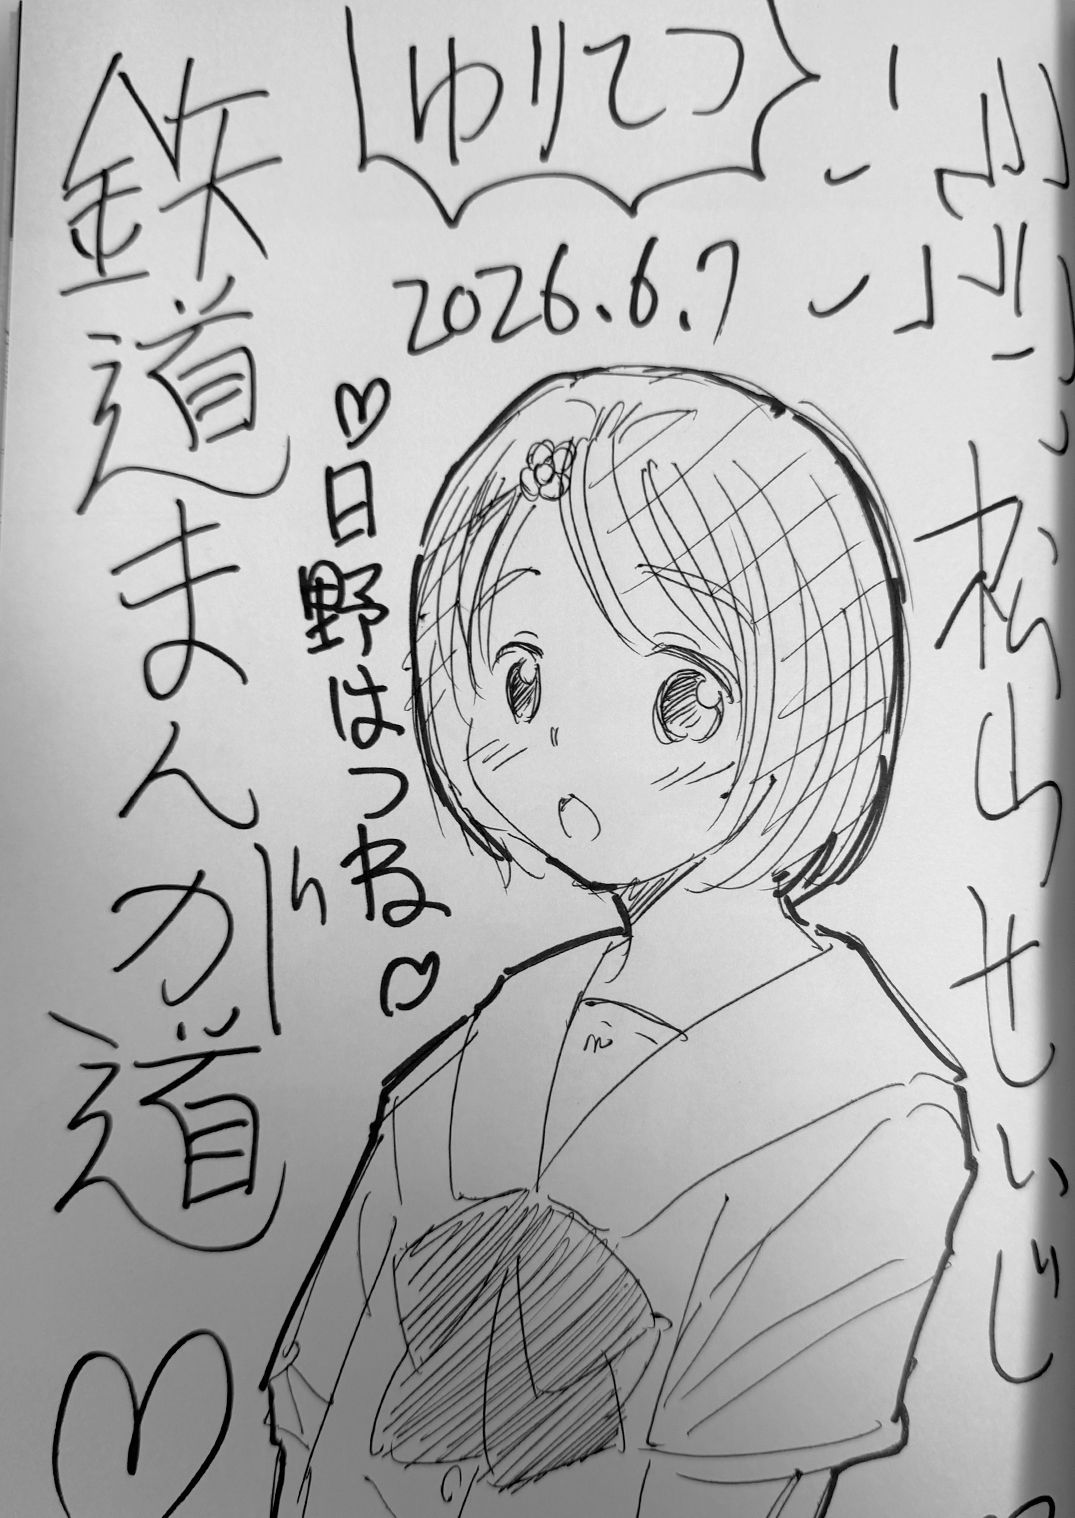 ゆりてつ
2026.6.7
松山せいじ
♡日野はつね♡
鉄道まんが道♡